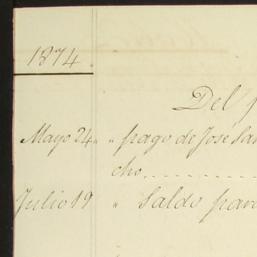 1874.
Del p
Mayo 24 " " pago de José San
cho
Julio 19 " Saldo para